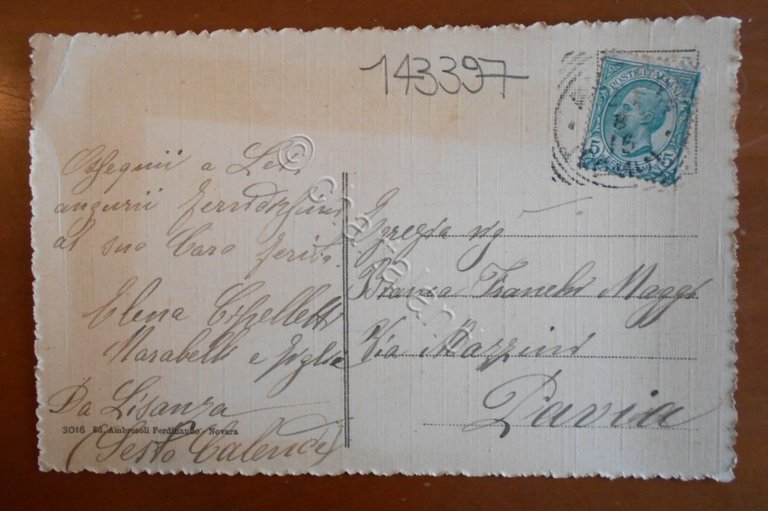 143397
POSTE ITALIANE
5 5
Ossequii a Lei
augurii
al suo Caro
Elena
Marabelli e figlia
Da Lisanza
(Sesto Calende)
Egregia sig
Bianca Franchi Maggi
Via Mazzini
Pavia
3016 Ed. Ambrosoli Ferdinando - Novara